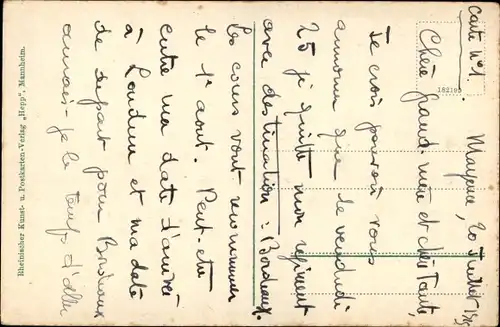 Carte N°1.
Mayence, 20 Juillet
Chère grand-mère et chère Tante,
Je crois pouvoir vous
annoncer que le vendredi
25 je quitte mon régiment
avec destination : Bordeaux.
Les cours vont recommencer
le 1er aout. Peut-être
entre ma date d'arrivée
à Loudun et ma date
de départ pour Bordeaux
aurais-je le temps d'aller
182195
Rheinischer Kunst- u. Postkarten-Verlag „Hepp", Mannheim.